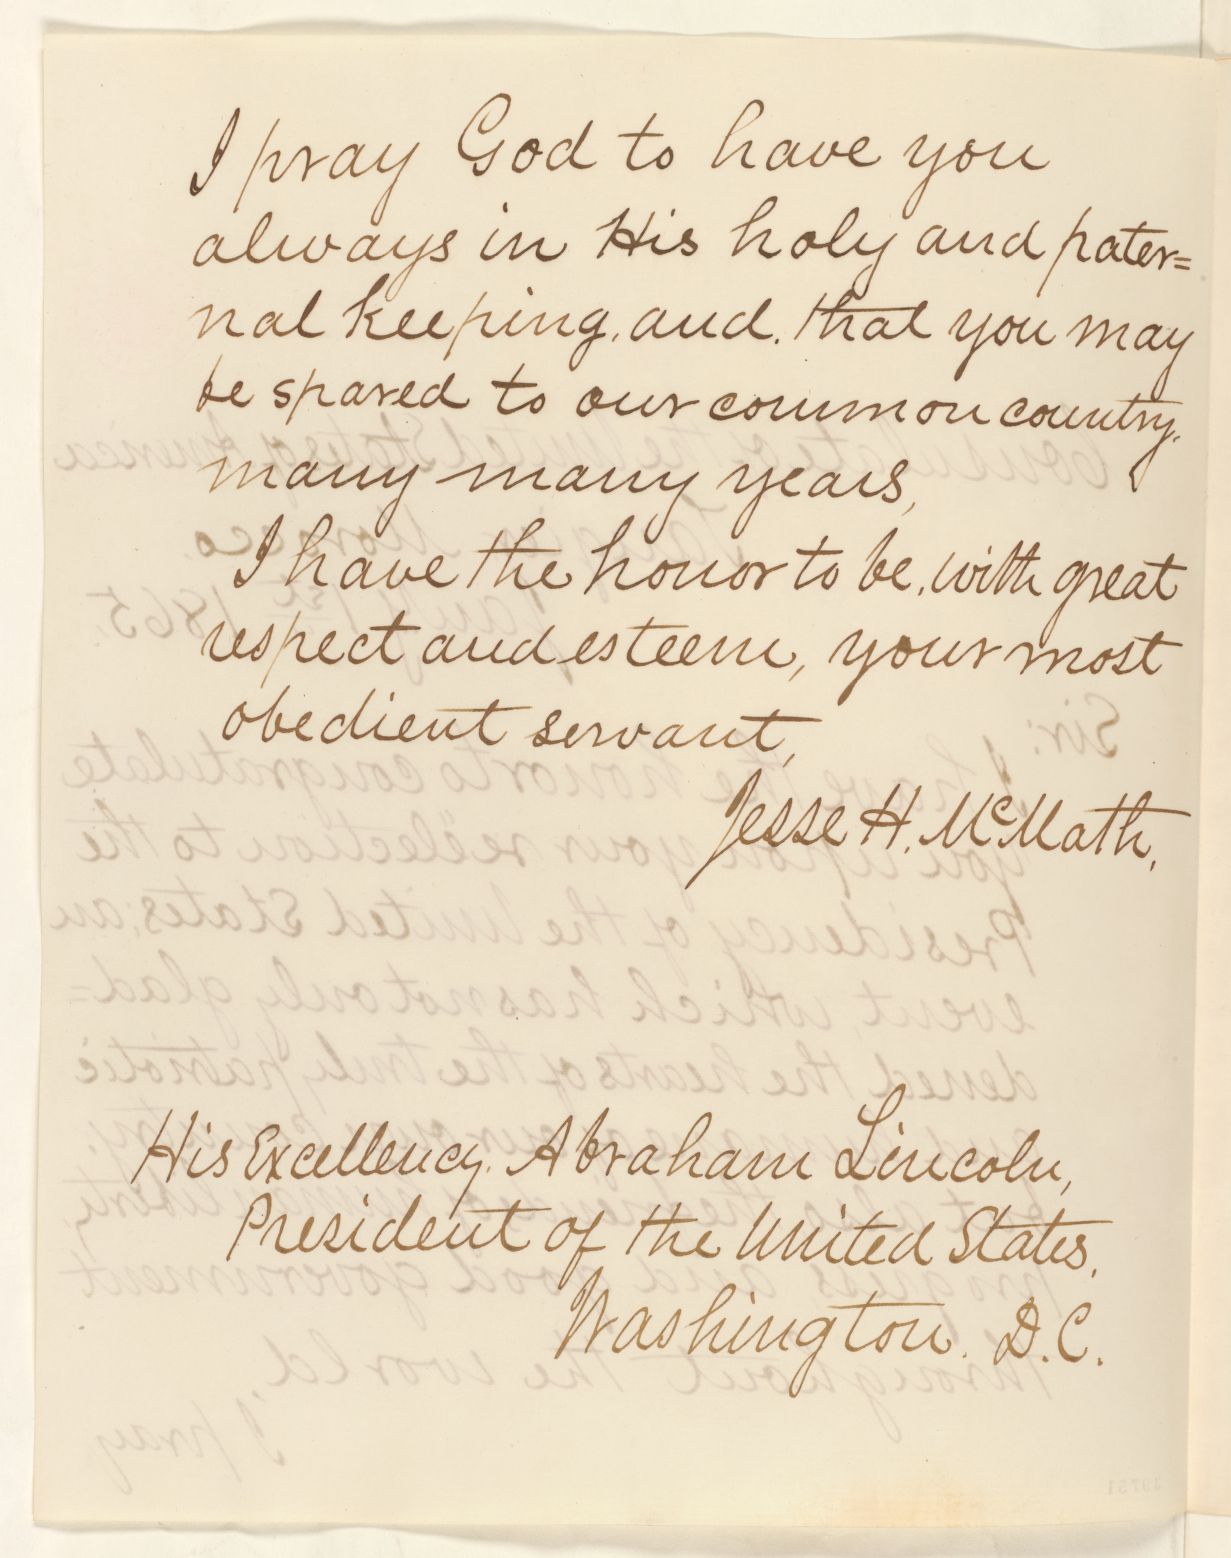 I pray God to have you
always in His holy and pater=
nal keeping, and, that you may
be spared to our common country,
many many years,
I have the honor to be, with great
respect and esteem, your most
obedient servant,
Jesse H. McMath.
His Excellency, Abraham Lincoln,
President of the United States,
Washington. D.C.